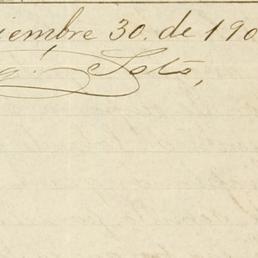 iembre 30. de 190
Soto,